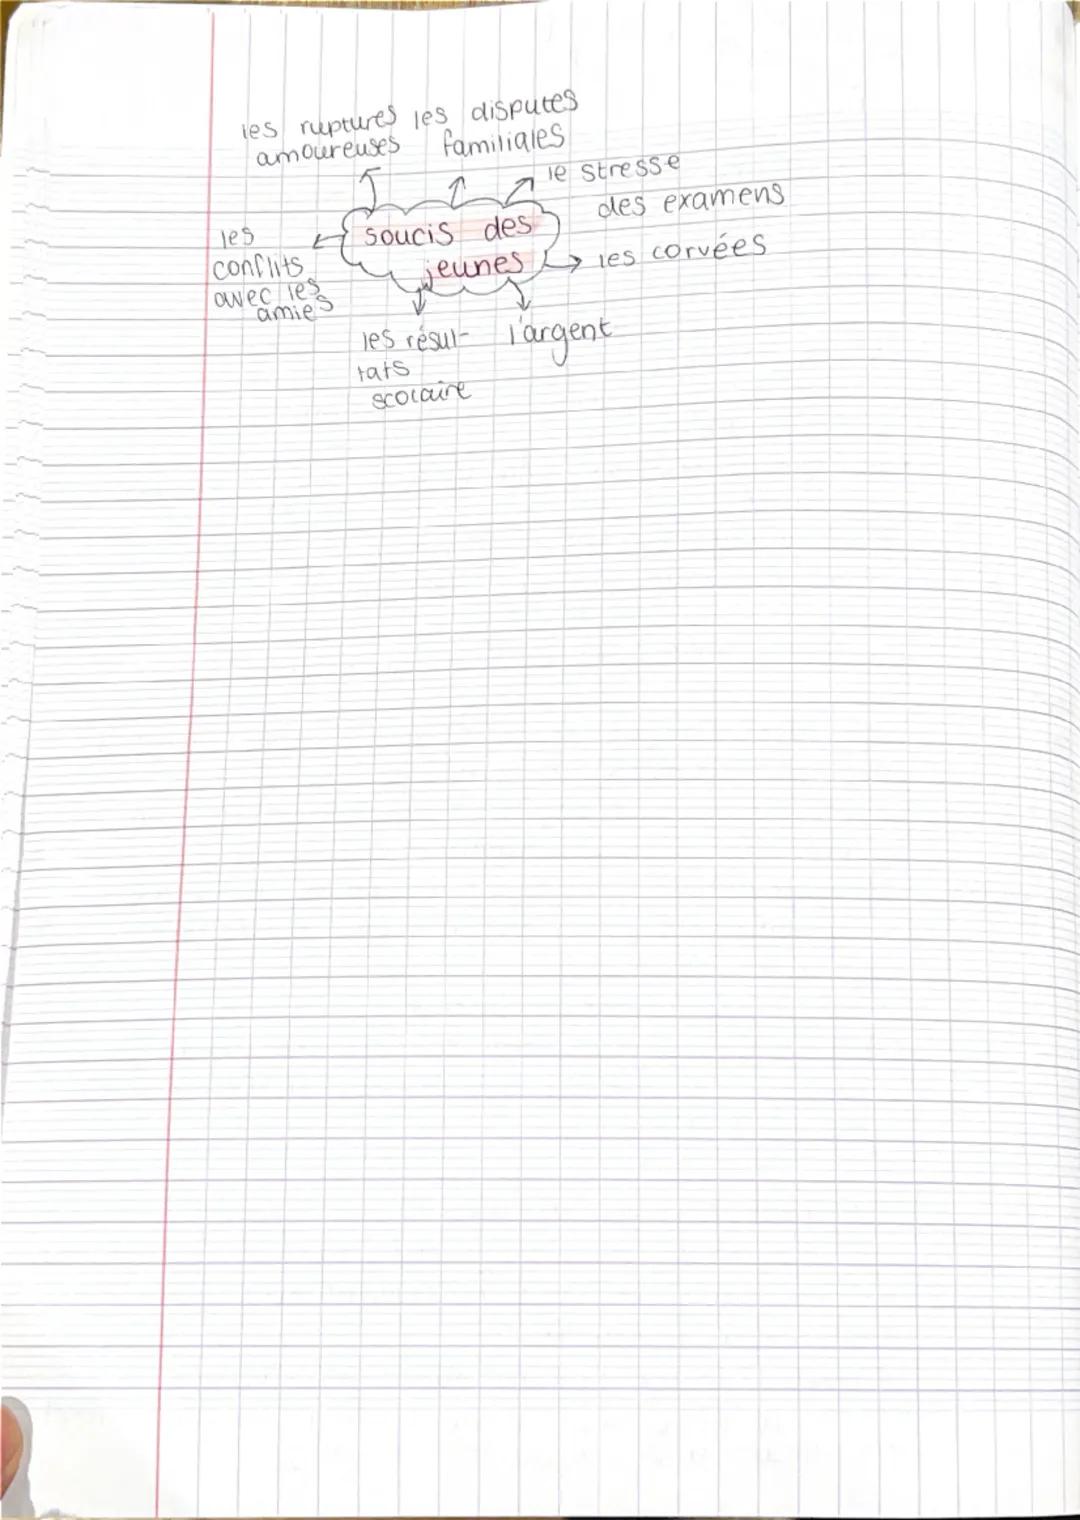 les ruptures
amoureuses
les disputes
familiales
le stresse
des examens
les
conflits
avec les
amies
soucis des
jeunes
les corvées
les résul-
tats
scolaire
l'argent